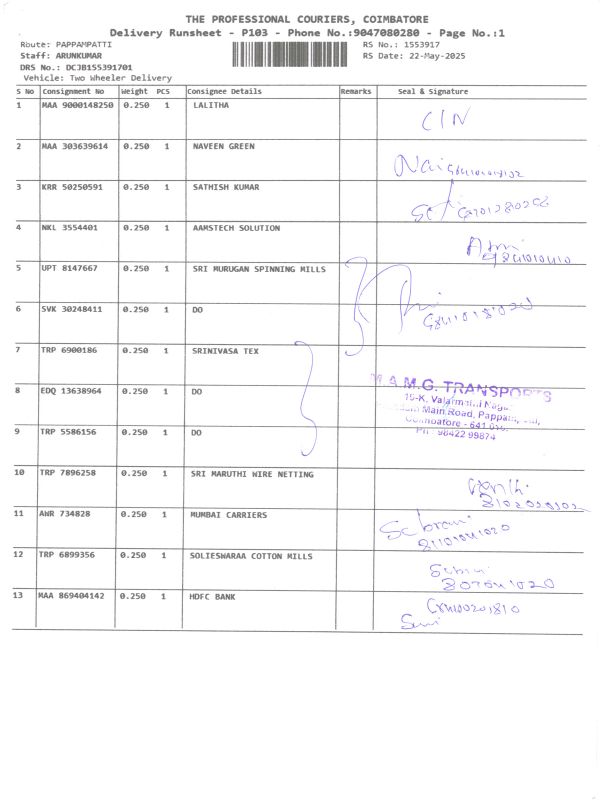 THE PROFESSIONAL COURIERS, COIMBATORE
Delivery Runsheet - P103 - Phone No.:9047080280 - Page No.:1
Route: PAPPAMPATTI RS No.: 1553917
Staff: ARUNKUMAR RS Date: 22-May-2025
DRS No.: DCJB155391701
Vehicle: Two Wheeler Delivery
S No Consignment No Weight PCS Consignee Details Remarks Seal & Signature
1 MAA 9000148250 0.250 1 LALITHA C/N
2 MAA 303639614 0.250 1 NAVEEN GREEN
3 KRR 50250591 0.250 1 SATHISH KUMAR
4 NKL 3554401 0.250 1 AAMSTECH SOLUTION
5 UPT 8147667 0.250 1 SRI MURUGAN SPINNING MILLS
6 SVK 30248411 0.250 1 DO
7 TRP 6900186 0.250 1 SRINIVASA TEX
8 EDQ 13638964 0.250 1 DO
M.G. TRANSPORTS
Main Road,
Coimbatore - 641
9 TRP 5586156 0.250 1 DO
Ph : 98422 99874
10 TRP 7896258 0.250 1 SRI MARUTHI WIRE NETTING
11 AWR 734828 0.250 1 MUMBAI CARRIERS
12 TRP 6899356 0.250 1 SOLIESWARAA COTTON MILLS
13 MAA 869404142 0.250 1 HDFC BANK